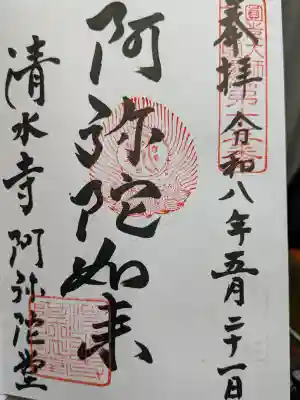 奉拝 令和八年五月二十一日
阿弥陀如来
清水寺 阿弥陀堂